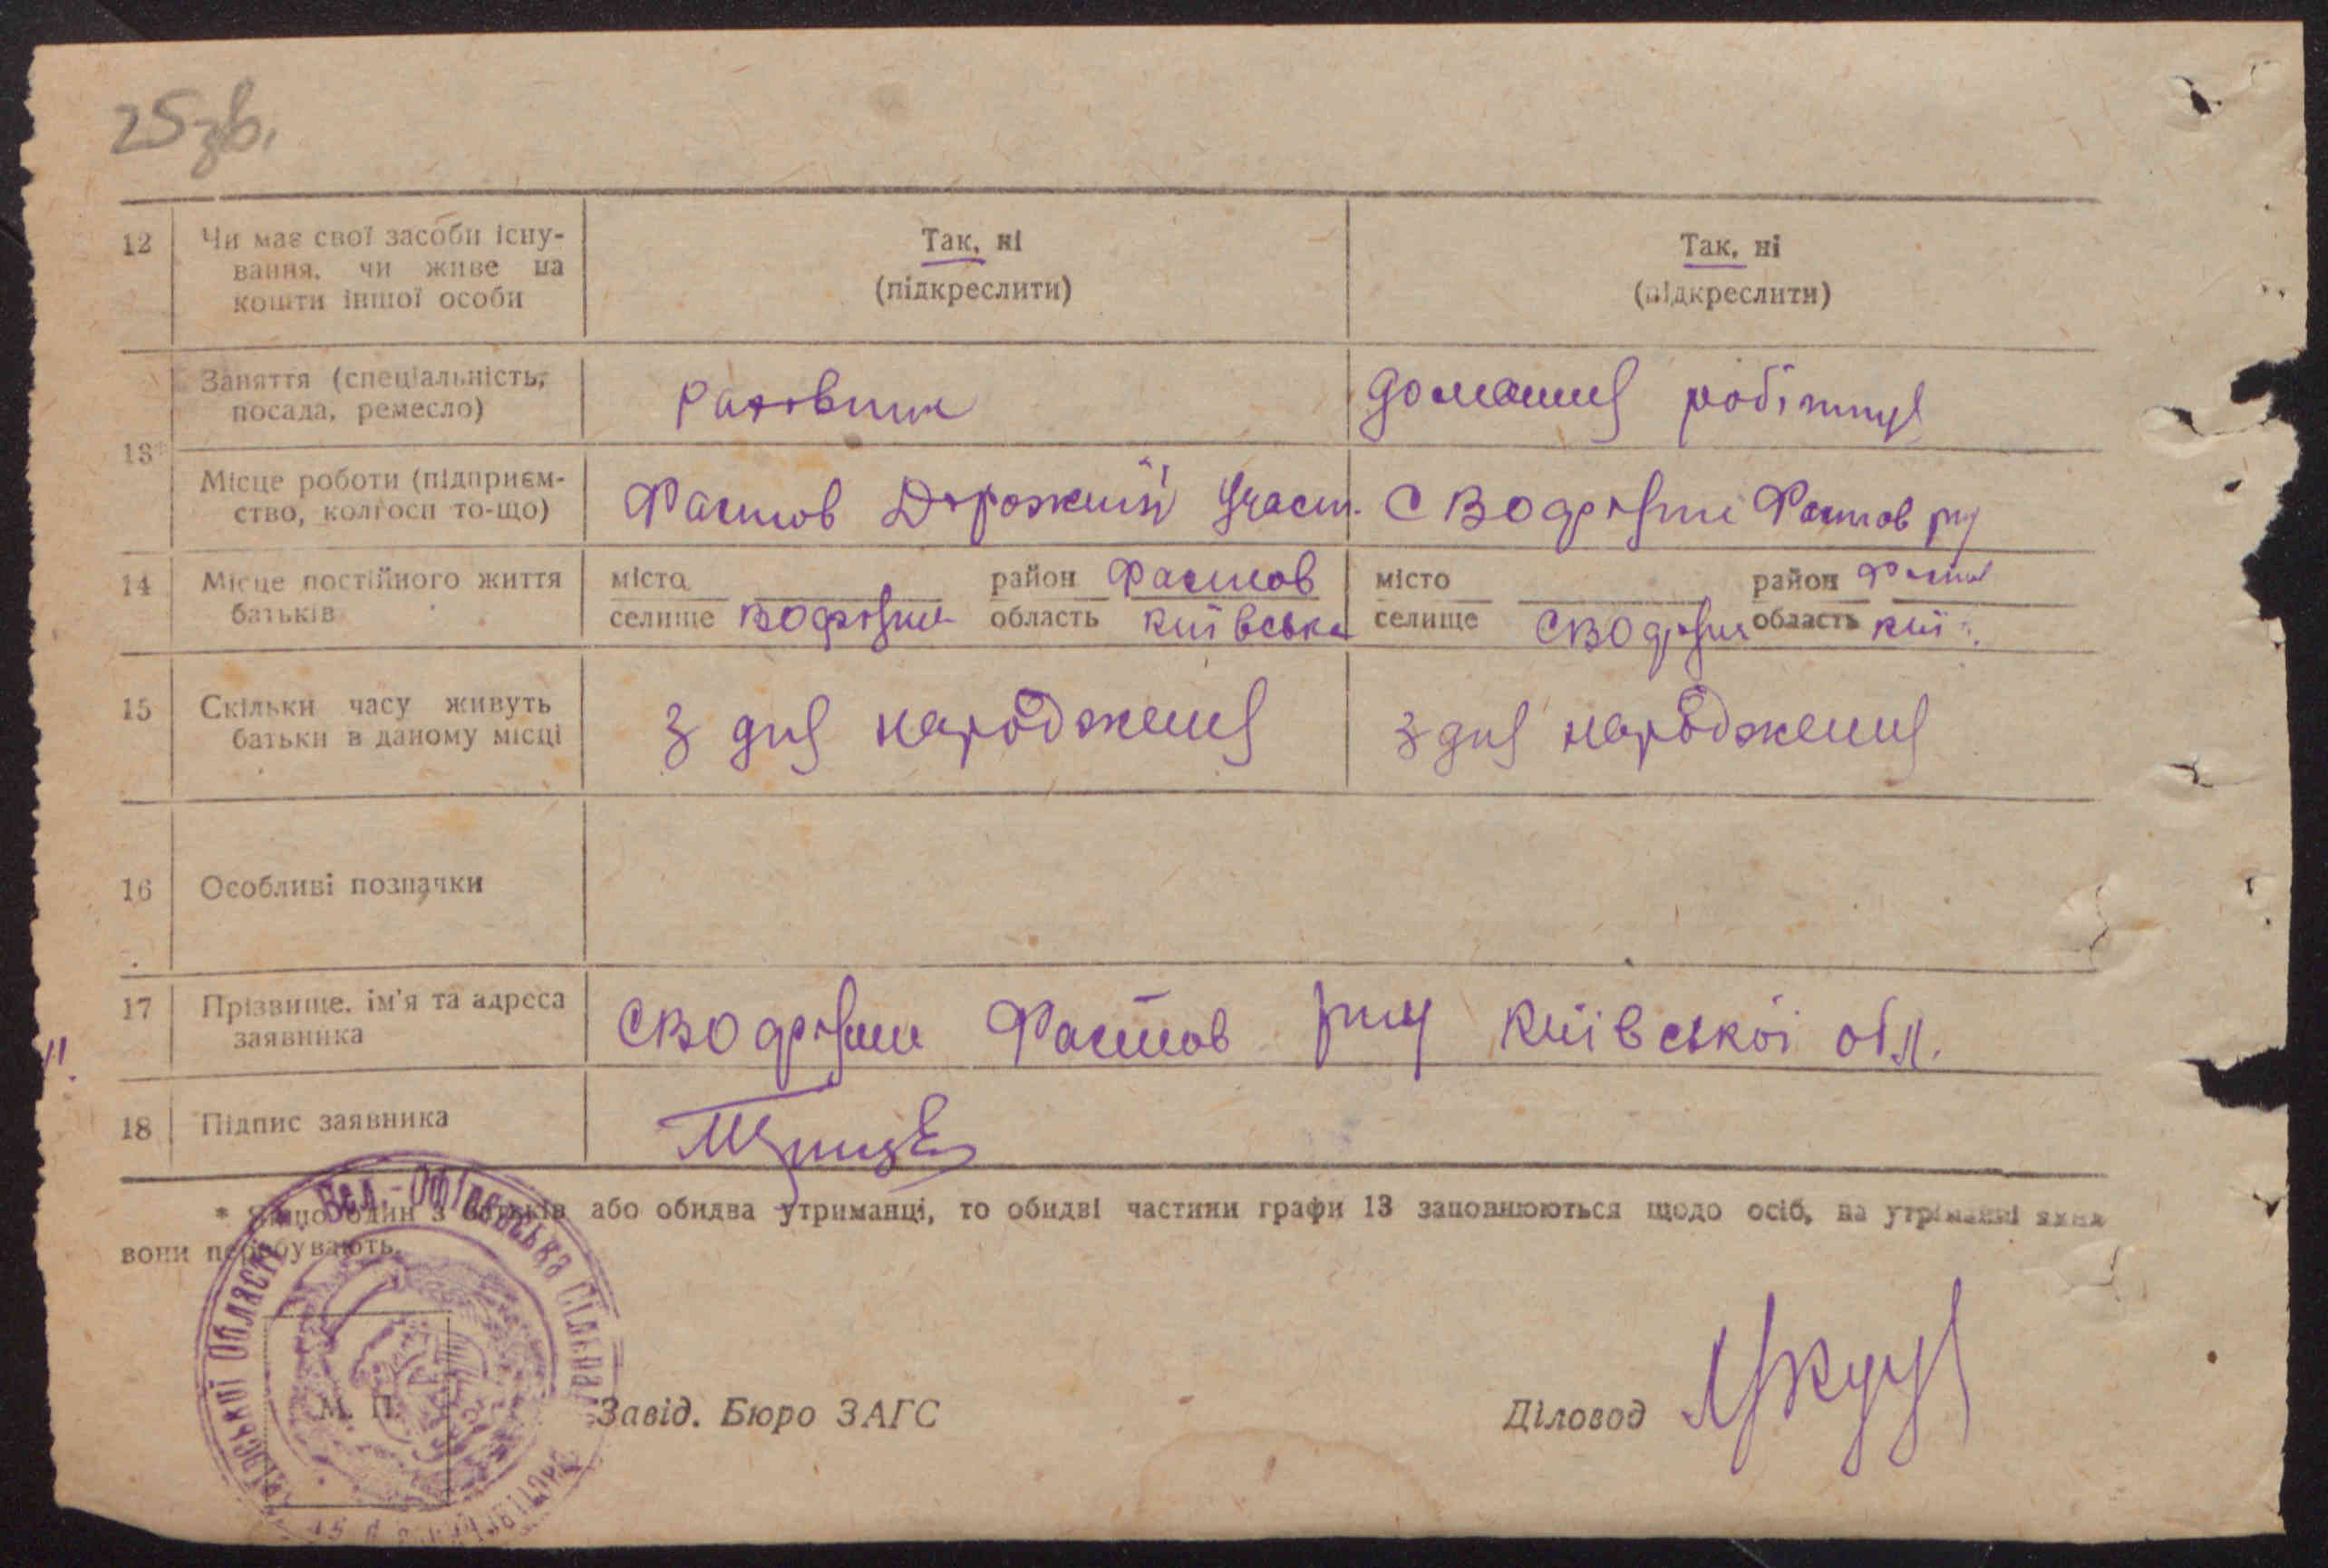 25зв.
12 Чи має свої засоби існу-
вання, чи живе на
кошти іншої особи
Так, ні
(підкреслити)
Так, ні
(підкреслити)
13*
Заняття (спеціальність,
посада, ремесло)
Раховник
домашня робітниця
Місце роботи (підприєм-
ство, колгосп то-що)
Фастов Дорожний Участ.
с Водотиї Фастов р-у
14 Місце постійного життя
батьків
місто район Фастов
селище область Київська
місто район Фастов
селище область Київ.
15 Скільки часу живуть
батьки в даному місці
З дня народження
З дня народження
16 Особливі позначки
17 Прізвище, ім'я та адреса
заявника
Фастов р-ну Київської обл.
18 Підпис заявника
* Якщо один з батьків або обидва утриманці, то обидві частини графи 13 заповнюються щодо осіб, на утриманні яких
вони перебувають.
Вел.-Офірнська Сільрада
Київської Області
М. П.
Завід. Бюро ЗАГС
Діловод